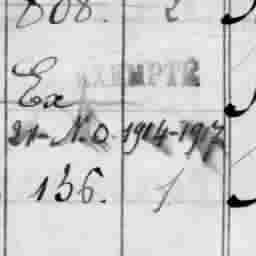 808. 2
Ex EXEMPTÉ
21-N.o 1914-1917
136. 1